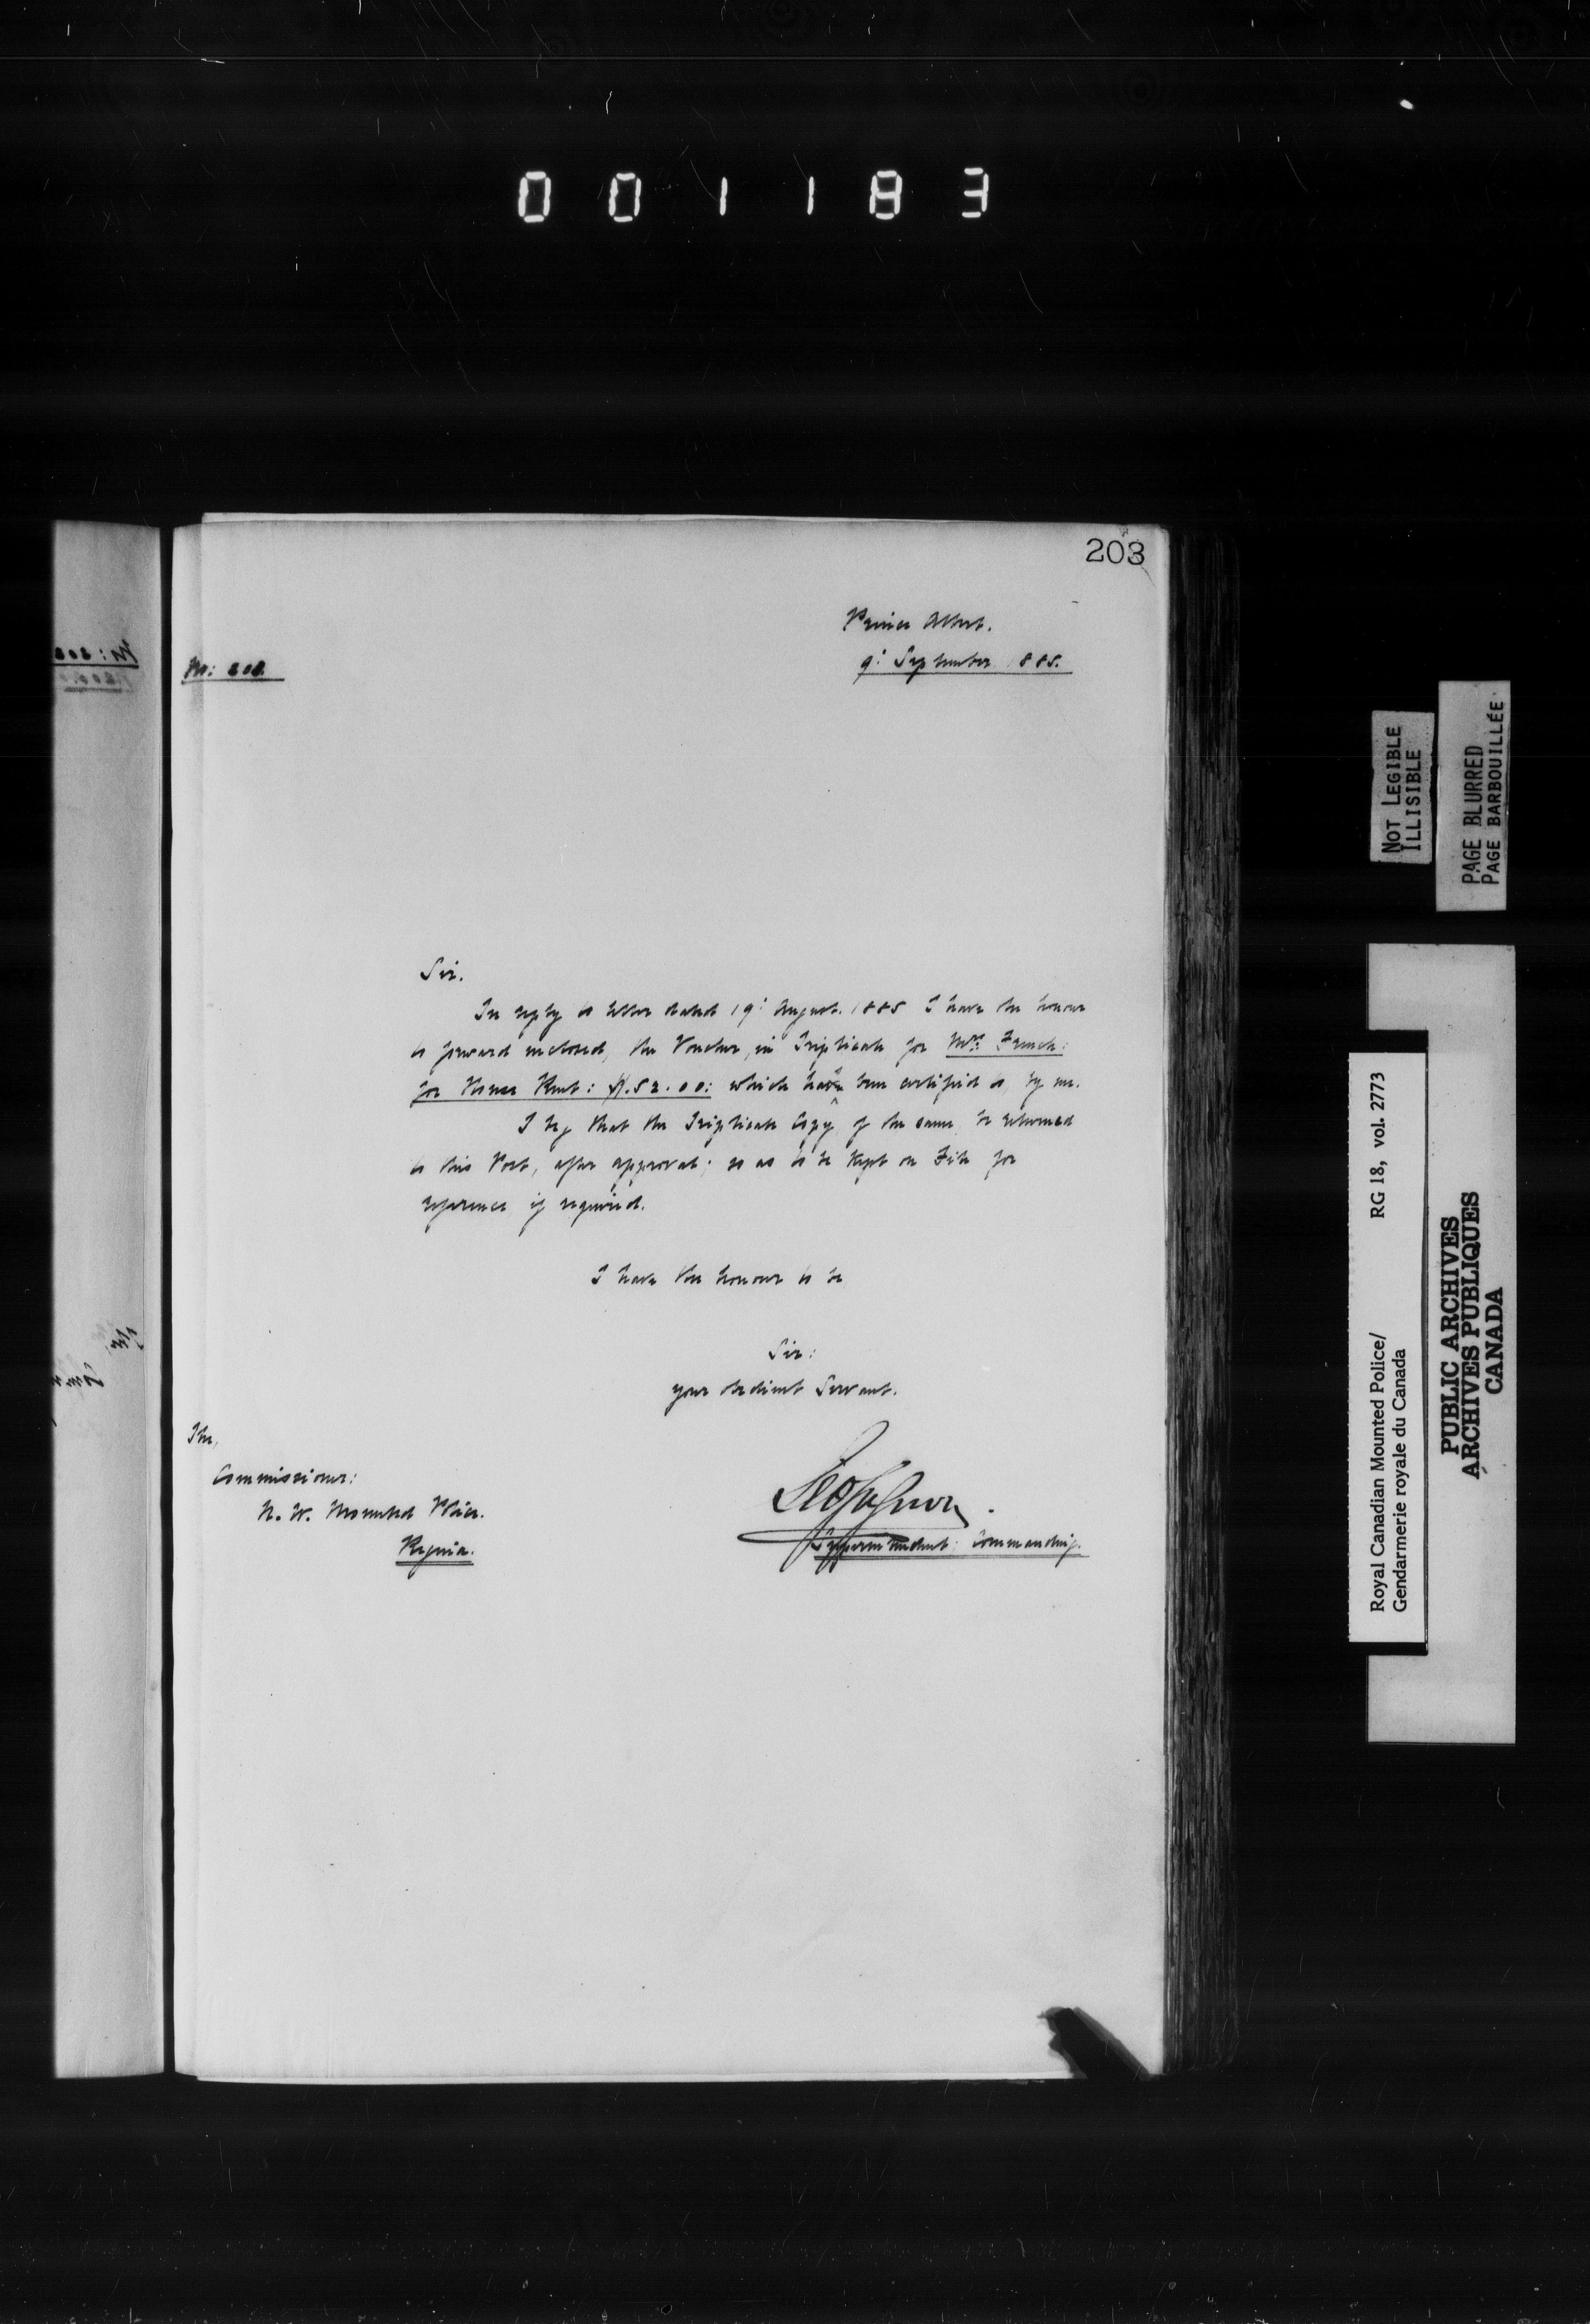 001183
203
Prince Albert.
9: September 1885.
No: 208
Sir.
In reply to letter dated 19: August. 1885 I have the honour
to forward enclosed, the Voucher, in Triplicate for Mrs: French:
for House Rent: $.52.00: which have been certified to by me.
I beg that the Triplicate Copy of the same be returned
to this Post, after approval; so as to be kept on File for
reference if required.
I have the honour to be
Sir:
your obedient Servant.
The,
Commissioner:
N. W. Mounted Police.
Regina.
Superintendent: Commanding.
NOT LEGIBLE
ILLISIBLE
PAGE BLURRED
PAGE BARBOUILLÉE
Royal Canadian Mounted Police/ RG 18, vol. 2773
Gendarmerie royale du Canada
PUBLIC ARCHIVES
ARCHIVES PUBLIQUES
CANADA